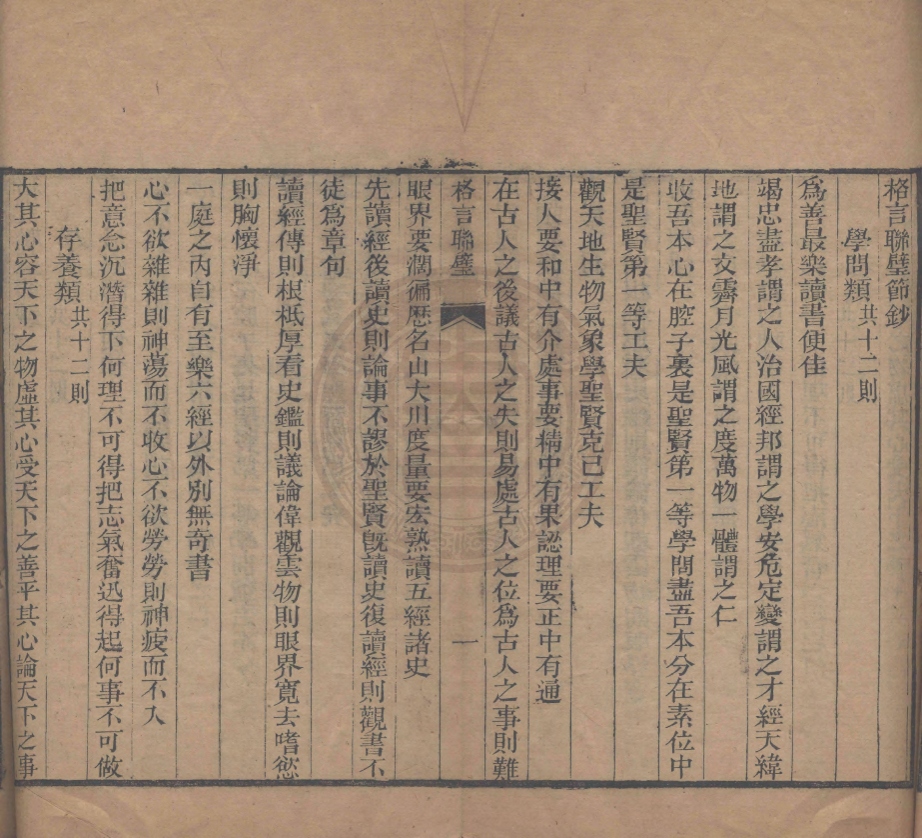 格言聯璧節鈔
學問類共十二則
爲善最樂讀書便佳
竭忠盡孝謂之人治國經邦謂之學安危定變謂之才經天緯
地謂之文霽月光風謂之度萬物一體謂之仁
收吾本心在腔子裏是聖賢第一等學問盡吾本分在素位中
是聖賢第一等工夫
觀天地生物氣象學聖賢克己工夫
接人要和中有介處事要精中有果認理要正中有通
在古人之後議古人之失則易處古人之位爲古人之事則難
格言聯璧
一
眼界要濶徧歷名山大川度量要宏熟讀五經諸史
先讀經後讀史則論事不謬於聖賢旣讀史復讀經則觀書不
徒爲章句
讀經傳則根柢厚看史鑑則議論偉觀雲物則眼界寬去嗜慾
則胸懷淨
一庭之內自有至樂六經以外別無奇書
心不欲雜雜則神蕩而不收心不欲勞勞則神疲而不入
把意念沉潛得下何理不可得把志氣奮迅得起何事不可做
存養類共十二則
大其心容天下之物虛其心受天下之善平其心論天下之事